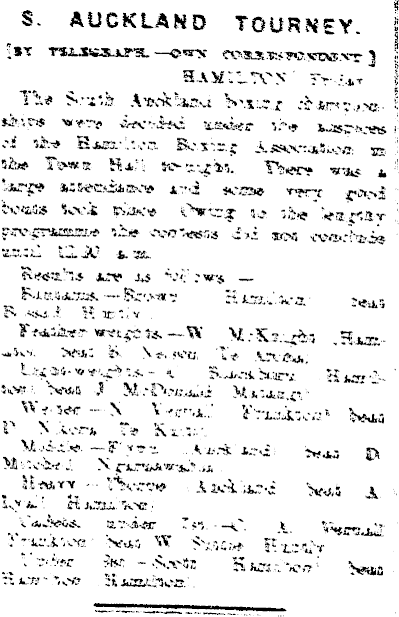 S. AUCKLAND TOURNEY.
[BY TELEGRAPH.—OWN CORRESPONDENT.]
HAMILTON, Friday.
The South Auckland boxing champion-
ships were decided under the auspices
of the Hamilton Boxing Association in
the Town Hall to-night. There was a
large attendance and some very good
bouts took place. Owing to the lengthy
programme the contests did not conclude
until a.m.
Results are as follows:—
Bantams.—Brown (Hamilton) beat
(Huntly).
Feather-weights.—W. McKnight (Ham-
beat Nelson (Te
Light-weights.— Blackburn (Hamil-
ton) beat J. McDonald
Welter.—N. Vernall (Frankton) beat
Te
Middle.—Flynn (Auckland) beat D.
Mitchell (Ngaruawahia).
Heavy.—Thorpe (Auckland) beat A.
Lyall (Hamilton).
Cadets, under A. Vernall
(Frankton) beat W. (Huntly).
Under Scott (Hamilton) beat
(Hamilton).